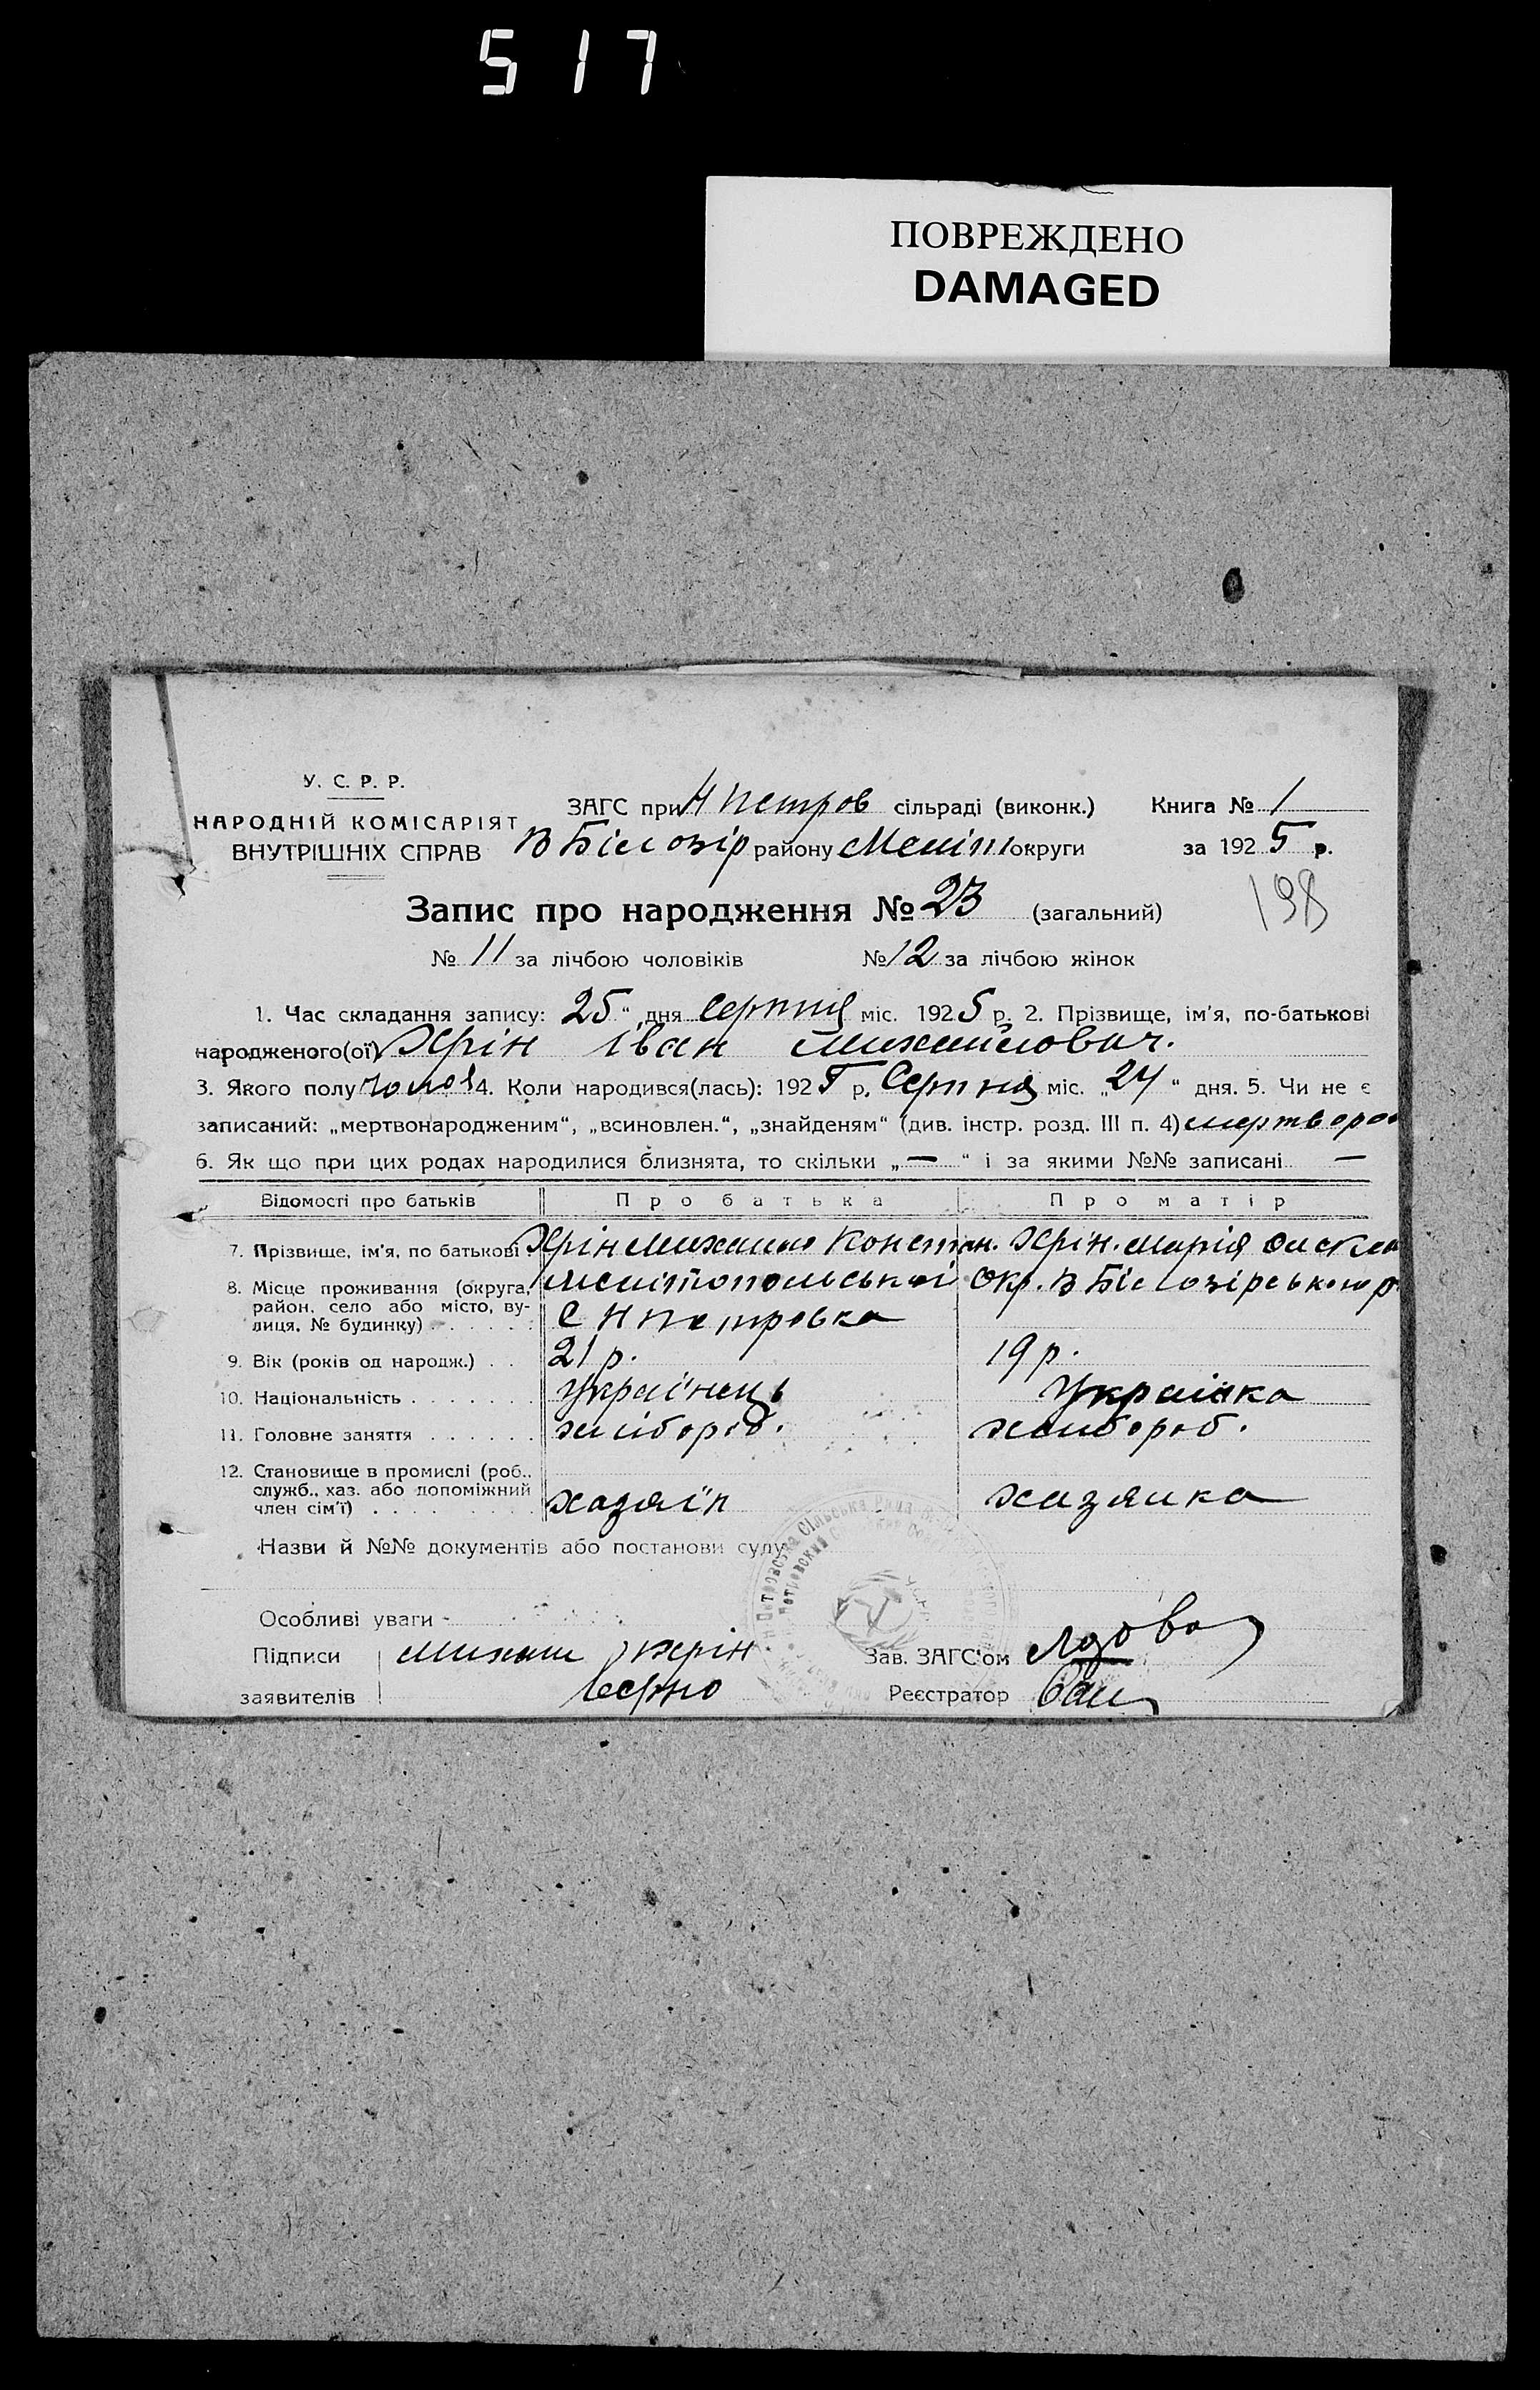 517
ПОВРЕЖДЕНО
DAMAGED
У. С. Р. Р.
НАРОДНІЙ КОМІСАРІЯТ
ВНУТРІШНІХ СПРАВ
ЗАГС при Н Петров сільраді (виконк.) Книга № 1
В Білозір району Меліт округи за 1925 р.
198
Запис про народження № 23 (загальний)
№ 11 за лічбою чоловіків № 12 за лічбою жінок
1. Час складання запису: 25 " дня Серпня міс. 1925 р. 2. Прізвище, ім'я, по-батькові
народженого(ої) Жрін Іван Михайлович.
3. Якого полу чолов 4. Коли народився(лась): 1925 р. Серпня міс. „24 " дня. 5. Чи не є
записаний: „мертвонародженим“, „всиновлен.“, „знайденям“ (див. інстр. розд. III п. 4) мертворо
6. Як що при цих родах народилися близнята, то скільки „ — “ і за якими №№ записані —
Відомості про батьків Про батька Про матір
7. Прізвище, ім'я, по батькові Жрін Михайло Констан. Жрін. Марія
8. Місце проживання (округа, район, село або місто, вулиця, № будинку) Мелітопольської Окр. В Білозірського р
С Н Петровка
9. Вік (років од народж.) 21 р. 19 р.
10. Національність Україїнець Українка
11. Головне заняття хлібороб. хлибороб.
12. Становище в промислі (роб., служб., хаз. або допоміжний член сім'ї) хазяїн хазяика
Назви й №№ документів або постанови суду
Особливі уваги
Підписи Михаил Жерін Зав. ЗАГС'ом
заявителів Верно Реєстратор